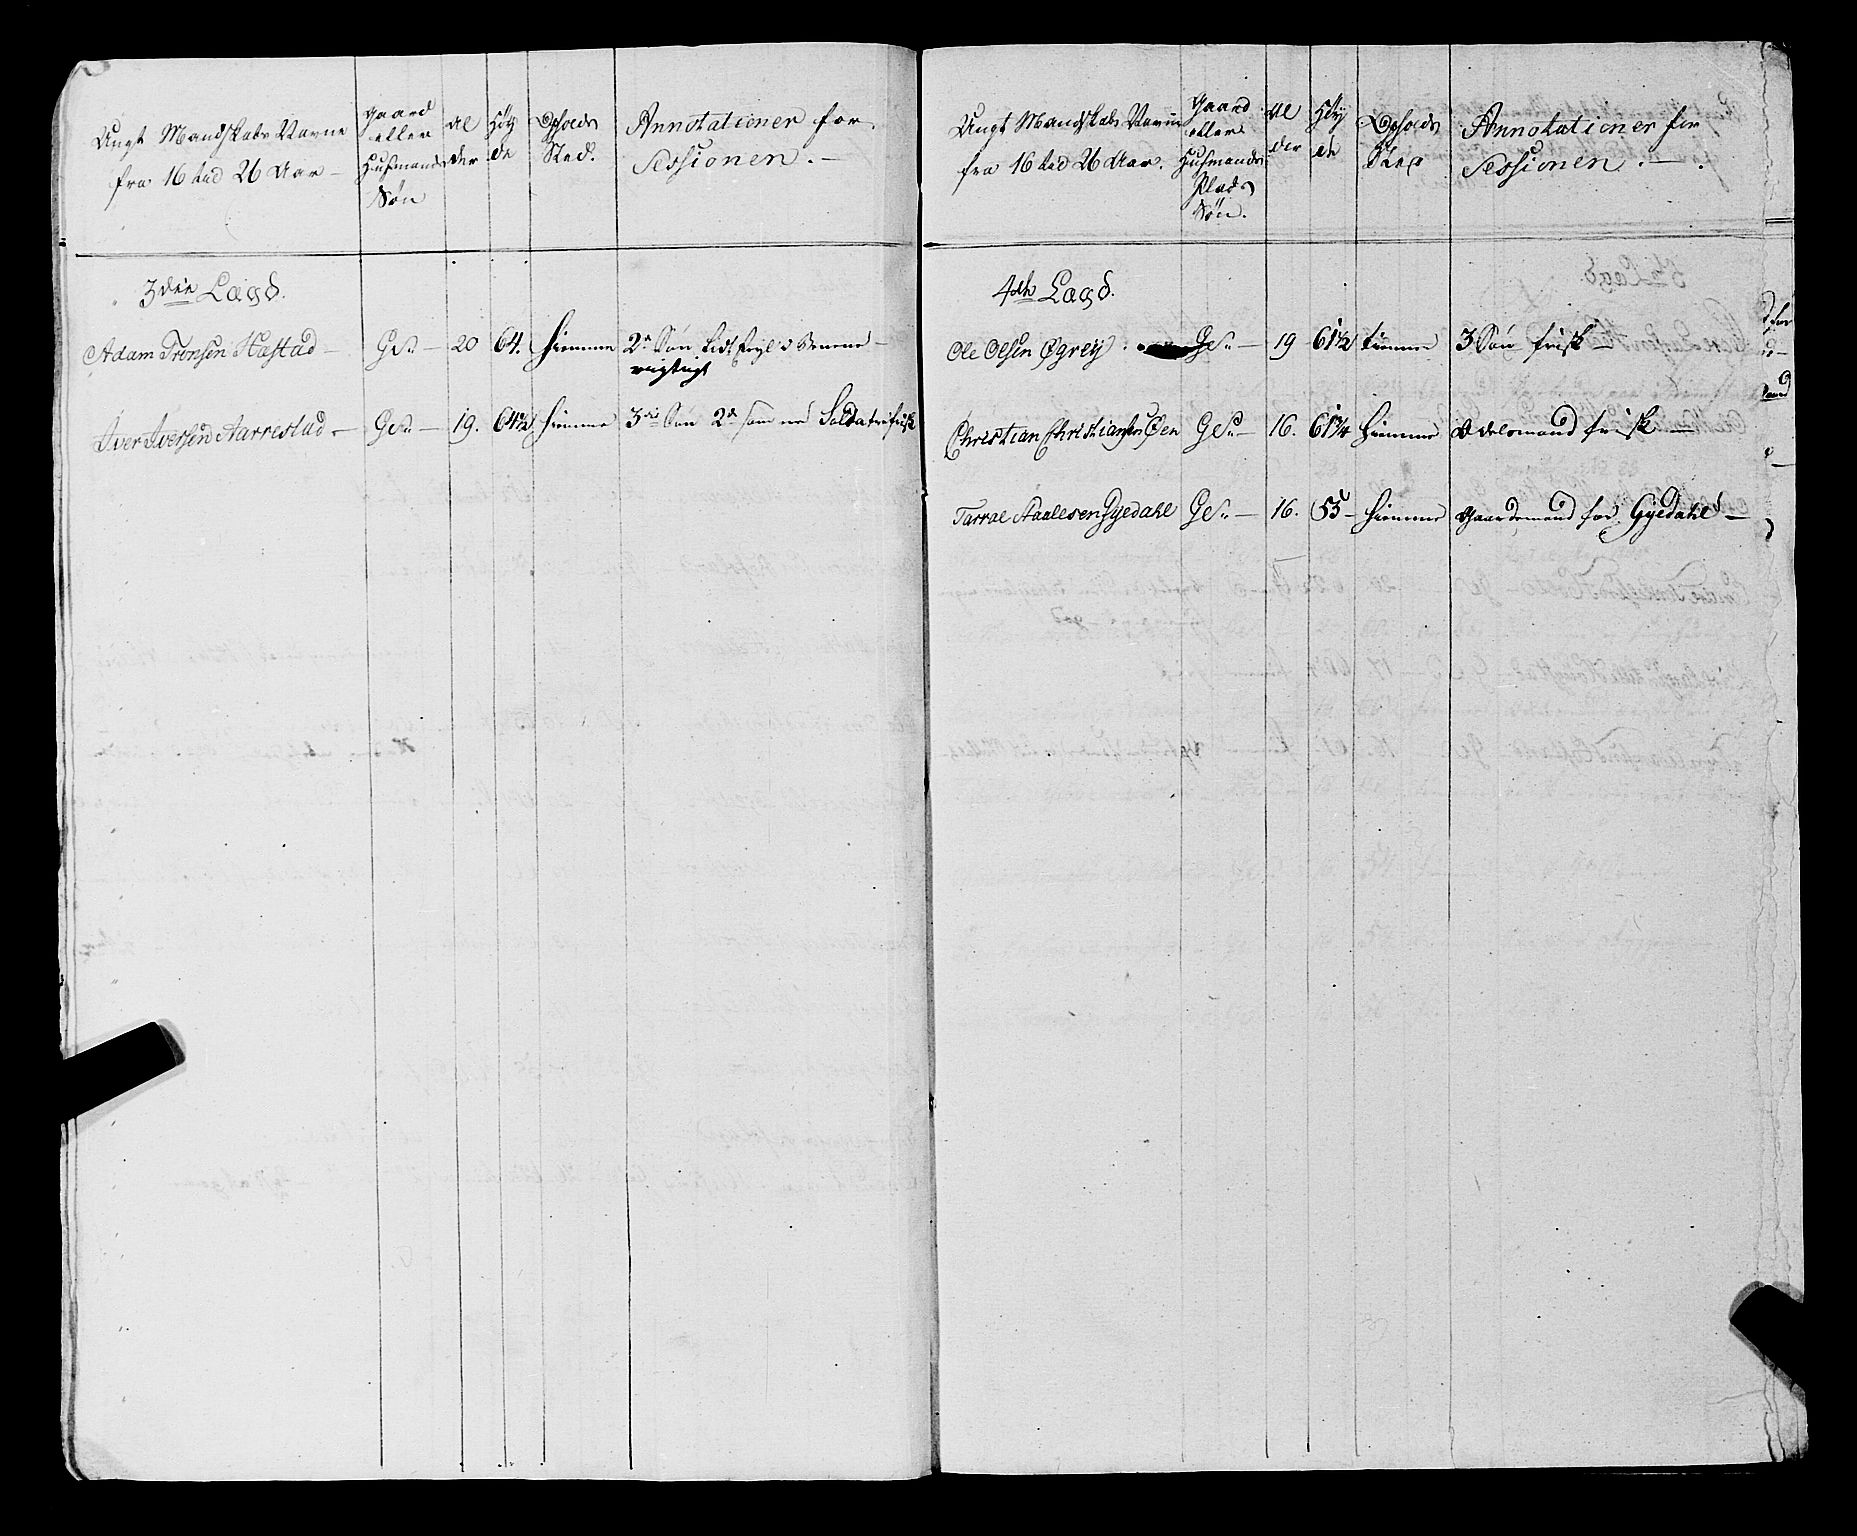 Ungt Mandskabs Navne
fra 16 til 26 Aar —
Gaard
eller
Husmands
Søn
Al
der
Høy
de
Opholds
Sted.
Annotationer for
Sessionen. —
3die Lagd.
Adam Tronsen Hastad — GS. — 20 64. hiemme 2n Søn lidt feyl i Benene —
Iver Iversen Aarrestad — GS. — 19. 64½ hiemme 3die Søn 2de som er Soldater frisk
Ungt Mandskabs Navne
fra 16 til 26 Aar.
Gaard
eller
Husmands
Plads
Søn.
Al
der
Høy
de
Opholds
Sted
Annotationer for
Sessionen. —
4de Lagd.
Ole Olsen Øgrey. GS. — 19 61½ hiemme 3 Søn frisk —
Christian Christiansen Øen GS. — 16. 61¼ hiemme Odelsmand frisk —
Tarral Aadesen Gyedahl GS. — 16. 55 — hiemme Gaardmand for Gyedahl —